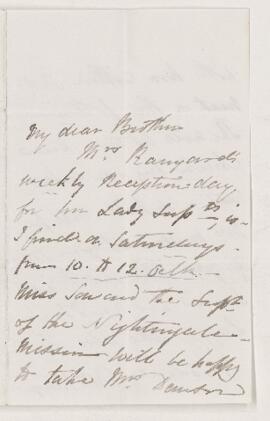 My dear Brother
Mrs Ranyard's
weekly Reception day,
for her Lady Supts, is
I find on Saturdays
from 10. to 12. oclk
Miss the Supt
of the Nightingale
Mission will be happy
to take Mrs Dawson